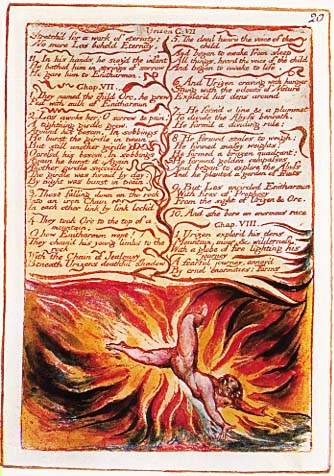 20
Urizen C: VII
Stretch'd for a work of eternity;
No more Los beheld Eternity.
11. In his hands he siez'd the infant
He bathed him in springs of sorrow
He gave him to Enitharmon.
Chap. VII.
1. They named the child Orc, he grew
Fed with milk of Enitharmon
2. Los awoke her; O sorrow & pain!
A tight'ning girdle grew,
Around his bosom. In sobbings
He burst the girdle in twain,
But still another girdle
Opressd his bosom, In sobbings
Again he burst it. Again
Another girdle succeeds
The girdle was form'd by day;
By night was burst in twain.
3. These falling down on the rock
Into an iron Chain
In each other link by link lock'd
4. They took Orc to the top of a
mountain.
O how Enitharmon wept!
They chain'd his young limbs to the
rock
With the Chain of Jealousy
Beneath Urizens deathful shadow
5. The dead heard the voice of the
child
And began to awake from sleep
All things. heard the voice of the child
And began to awake to life.
6. And Urizen craving with hunger
Stung with the odours of Nature
Explor'd his dens around
7. He form'd a line & a plummet
To divide the Abyss beneath.
He form'd a dividing rule:
8. He formed scales to weigh;
He formed massy weights;
He formed a brazen quadrant;
He formed golden compasses
And began to explore the Abyss
And he planted a garden of fruits
9. But Los encircled Enitharmon
With fires of Prophecy
From the sight of Urizen & Orc.
10. And she bore an enormous race
Chap. VIII.
1. Urizen explor'd his dens
Mountain, moor, & wilderness,
With a globe of fire lighting his
journey
A fearful journey, annoy'd
By cruel enormities: forms